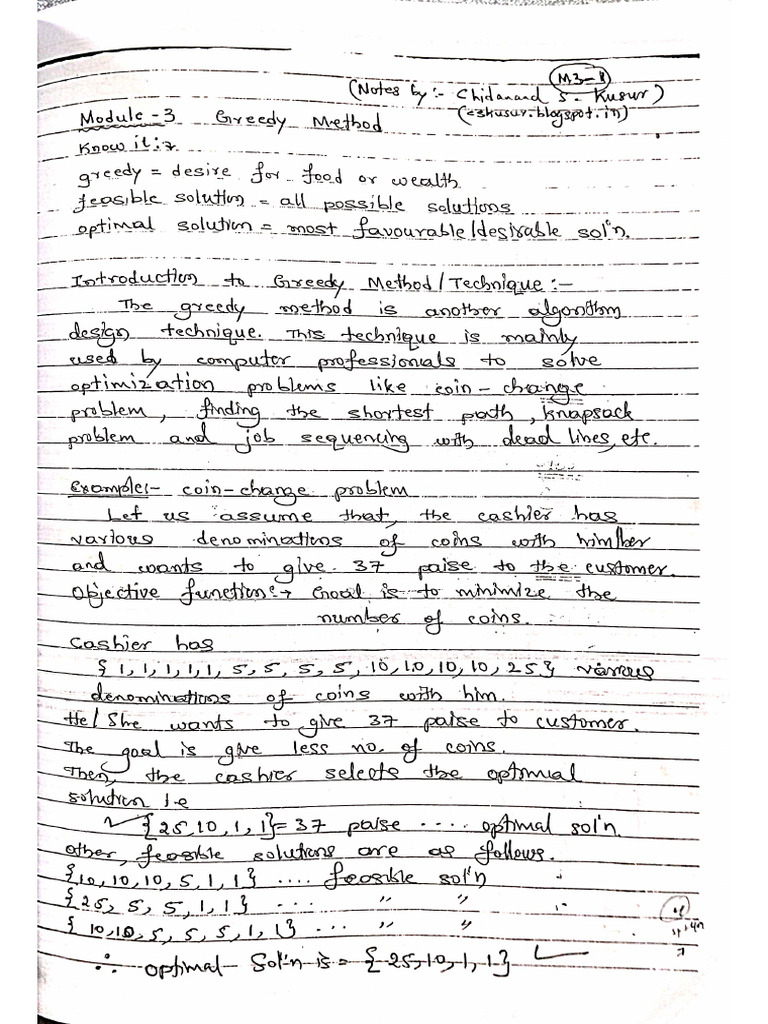 M3-1
(Notes by:- Chidanand S. Kusur)
Module-3 Greedy Method (c3kusur.blogspot.in)
Know it:→
greedy = desire for food or wealth
feasible solution = all possible solutions
optimal solution = most favourable/desirable sol'n.
Introduction to Greedy Method/Technique:-
The greedy method is another algorithm
design technique. This technique is mainly
used by computer professionals to solve
optimization problems like coin-change
problem, finding the shortest path, knapsack
problem and job sequencing with dead lines, etc.
Example:- coin-change problem
Let us assume that, the cashier has
various denominations of coins with him/her
and wants to give 37 paise to the customer.
Objective function:→ Goal is to minimize the
number of coins.
Cashier has
{1,1,1,1,1,5,5,5,5,10,10,10,10,25} various
denominations of coins with him.
He/She wants to give 37 paise to customer.
The goal is give less no. of coins.
Then, the cashier selects the optimal
solution i.e
✓ {25,10,1,1} = 37 paise .... optimal sol'n.
other, feasible solutions are as follows.
{10,10,10,5,1,1} .... feasible sol'n
{25,5,5,1,1} ... " "
{10,10,5,5,5,1,1} ... " "
∴ optimal Sol'n is = {25,10,1,1} ✓